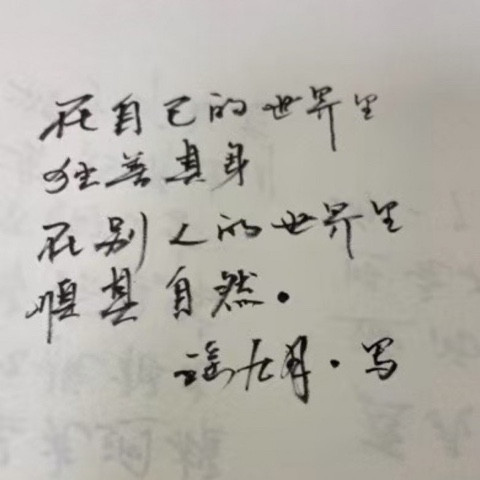 在自己的世界里
独善其身
在别人的世界里
顺其自然。
七月·写